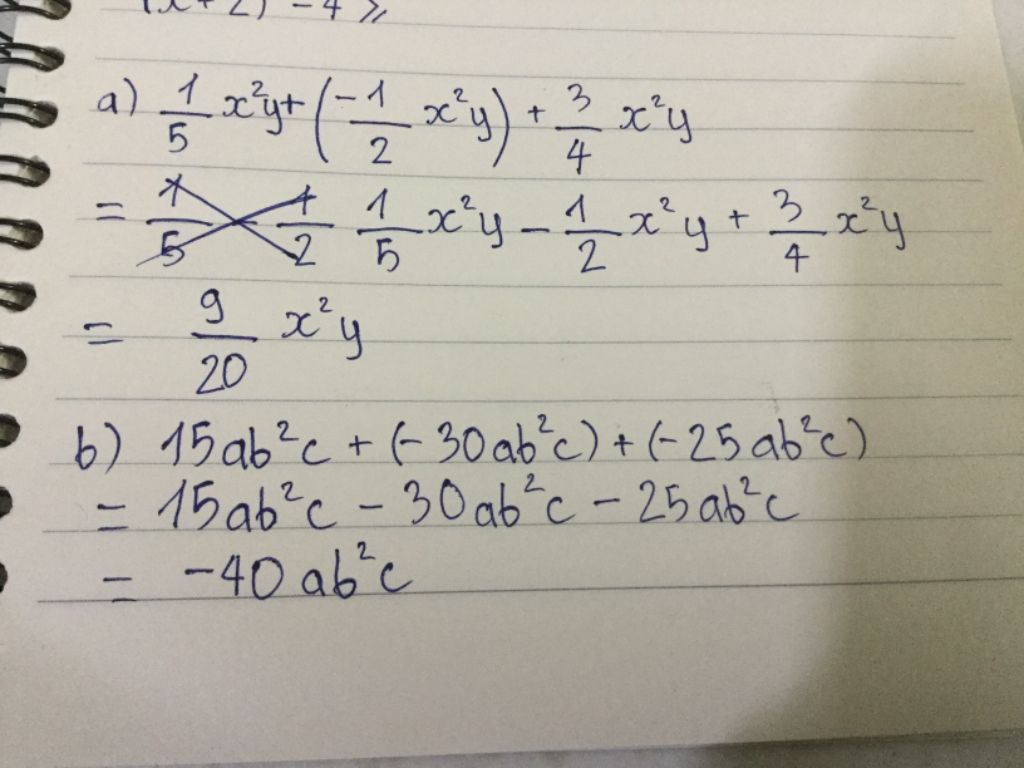 (x+2) - 4 ≥
a) 1/5 x²y + (-1/2 x²y) + 3/4 x²y
= 1/5 - 1/2 1/5 x²y - 1/2 x²y + 3/4 x²y
= 9/20 x²y
b) 15ab²c + (-30ab²c) + (-25ab²c)
= 15ab²c - 30ab²c - 25ab²c
= -40ab²c